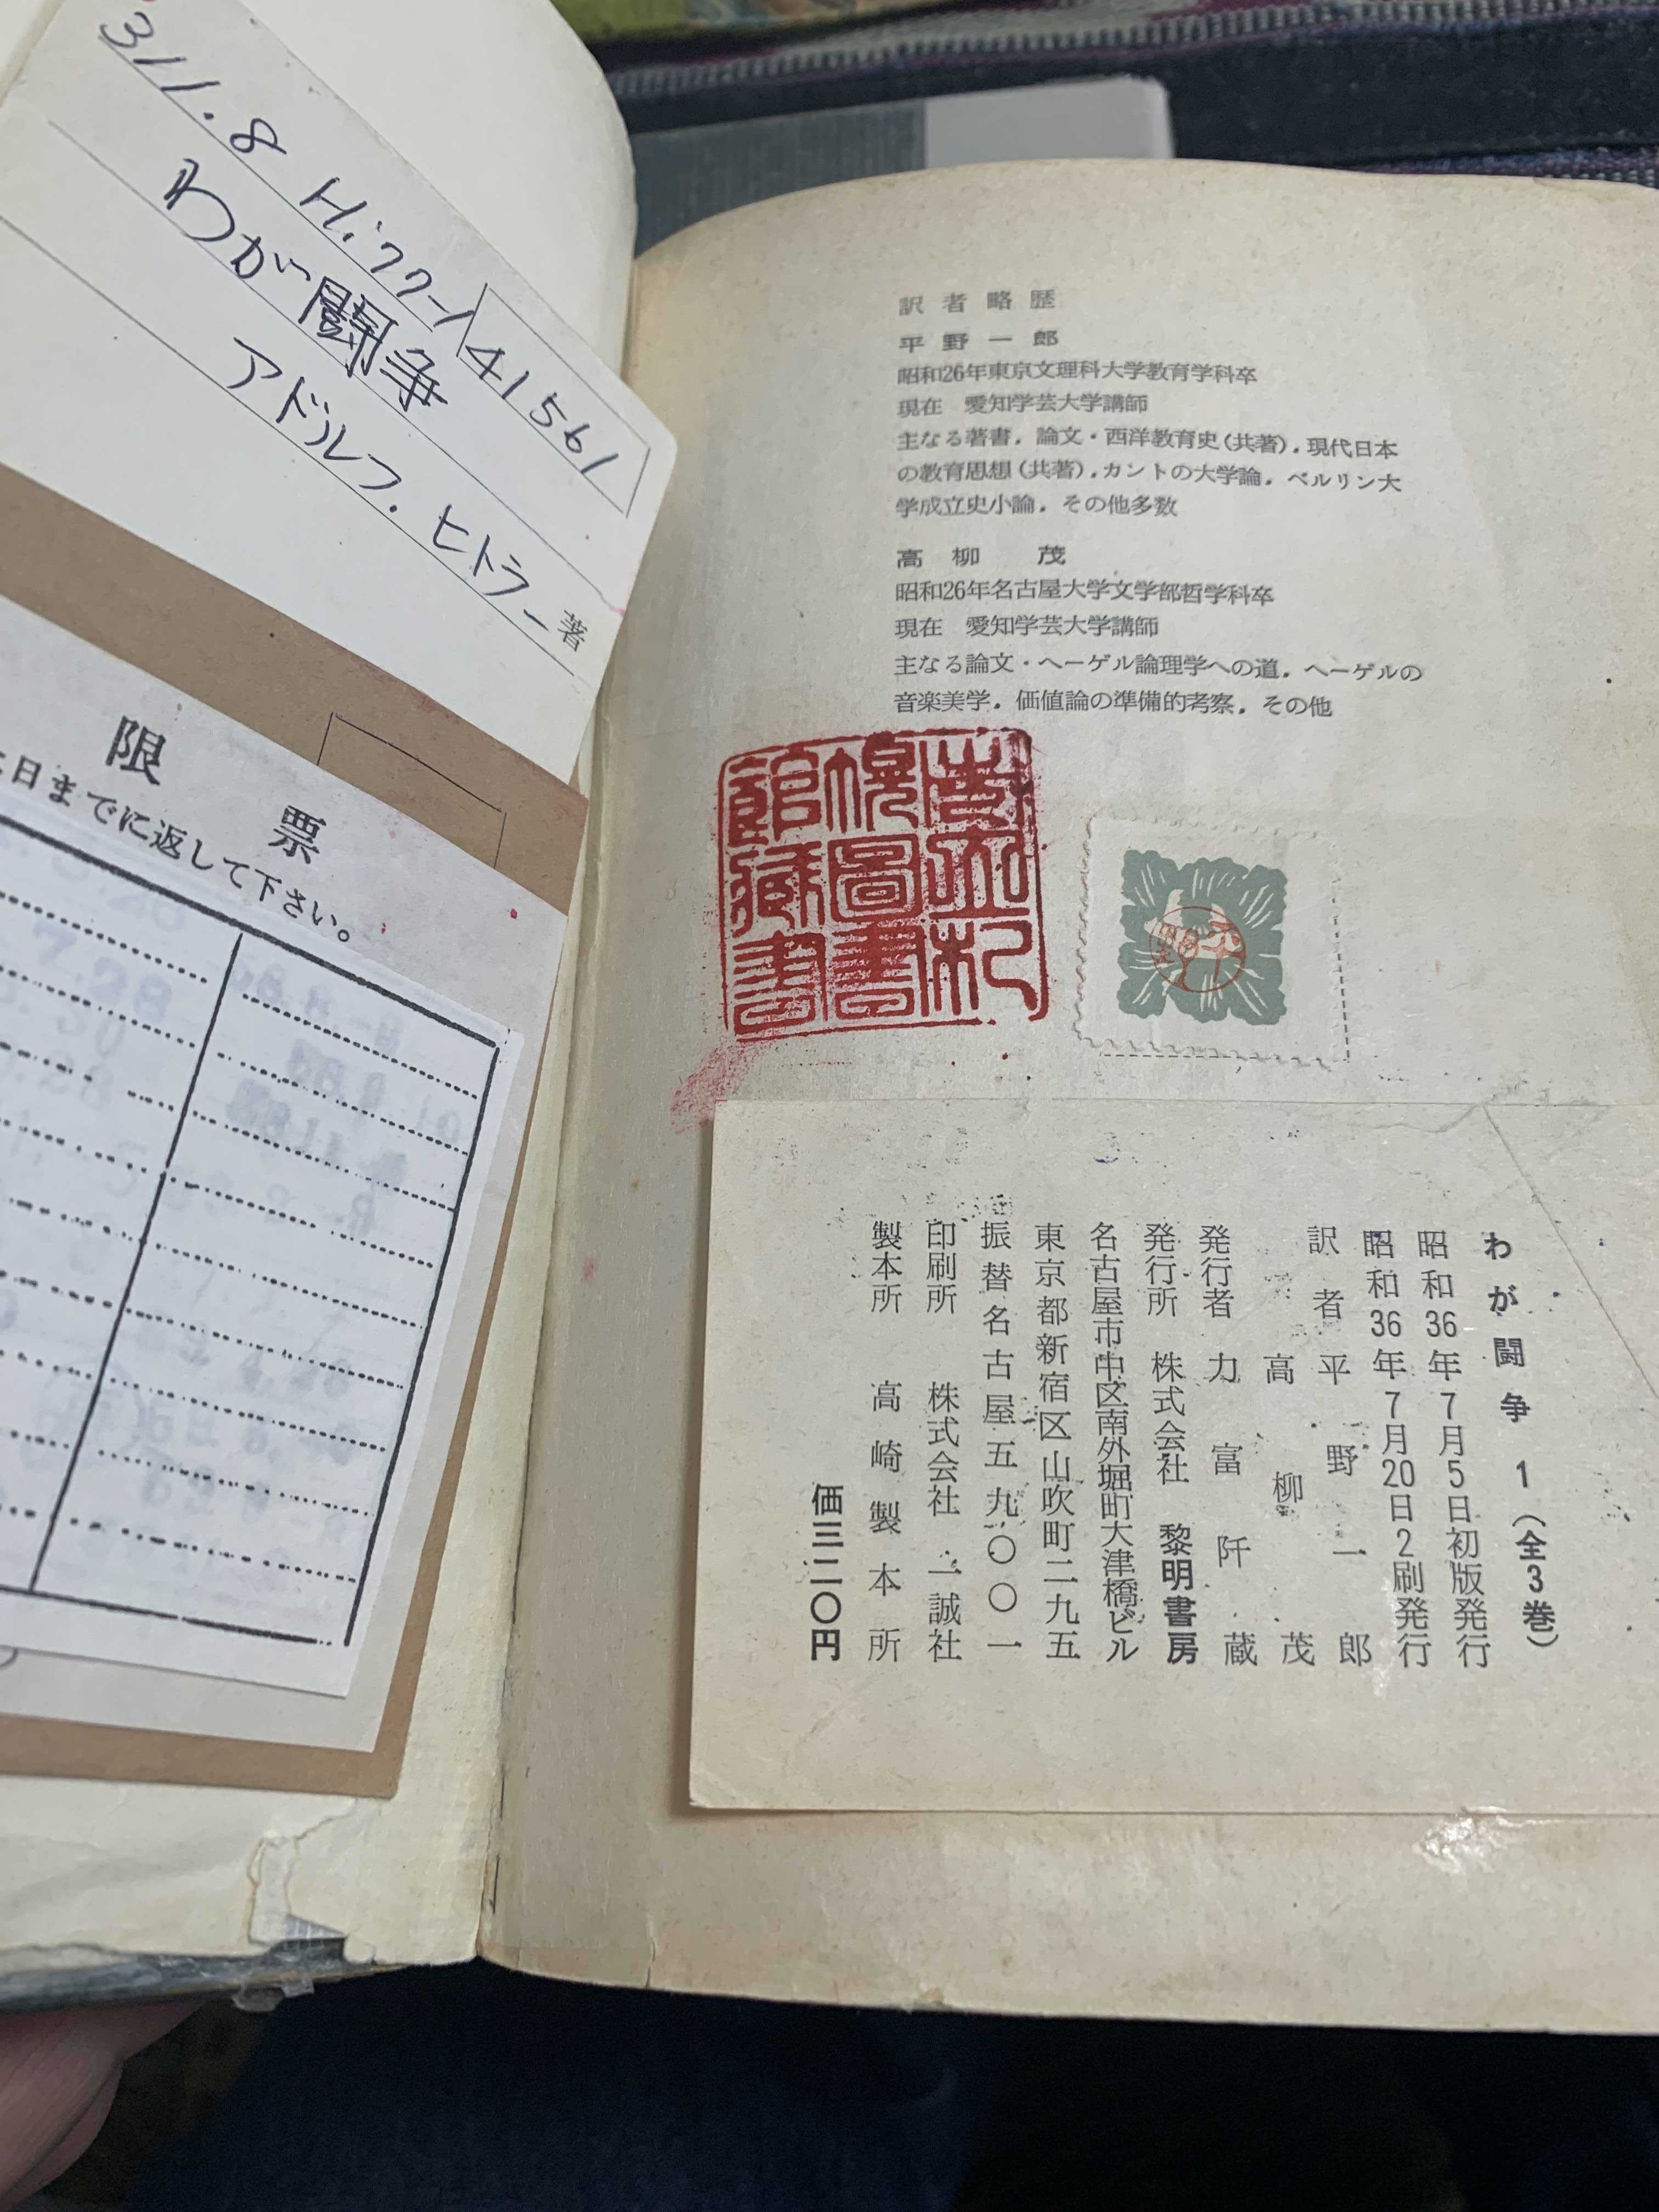 311.8 Hi77-1
41561
わが闘争
アドルフ.ヒトラー著
限票
日までに返して下さい。
訳者略歴
平野一郎
昭和26年東京文理科大学教育学科卒
現在　愛知学芸大学講師
主なる著書．論文・西洋教育史(共著)．現代日本
の教育思想(共著)．カントの大学論．ベルリン大
学成立史小論．その他多数
高柳　茂
昭和26年名古屋大学文学部哲学科卒
現在　愛知学芸大学講師
主なる論文・ヘーゲル論理学への道．ヘーゲルの
音楽美学．価値論の準備的考察．その他
市立札
幌圖書
館藏書
わが闘争　1（全3巻）
昭和36年7月5日初版発行
昭和36年7月20日2刷発行
訳者　平野一郎
高柳　茂
発行者　力富阡蔵
発行所　株式会社　黎明書房
名古屋市中区南外堀町大津橋ビル
東京都新宿区山吹町二九五
振替名古屋五九〇〇一
印刷所　株式会社　一誠社
製本所　高崎製本所
価三二〇円